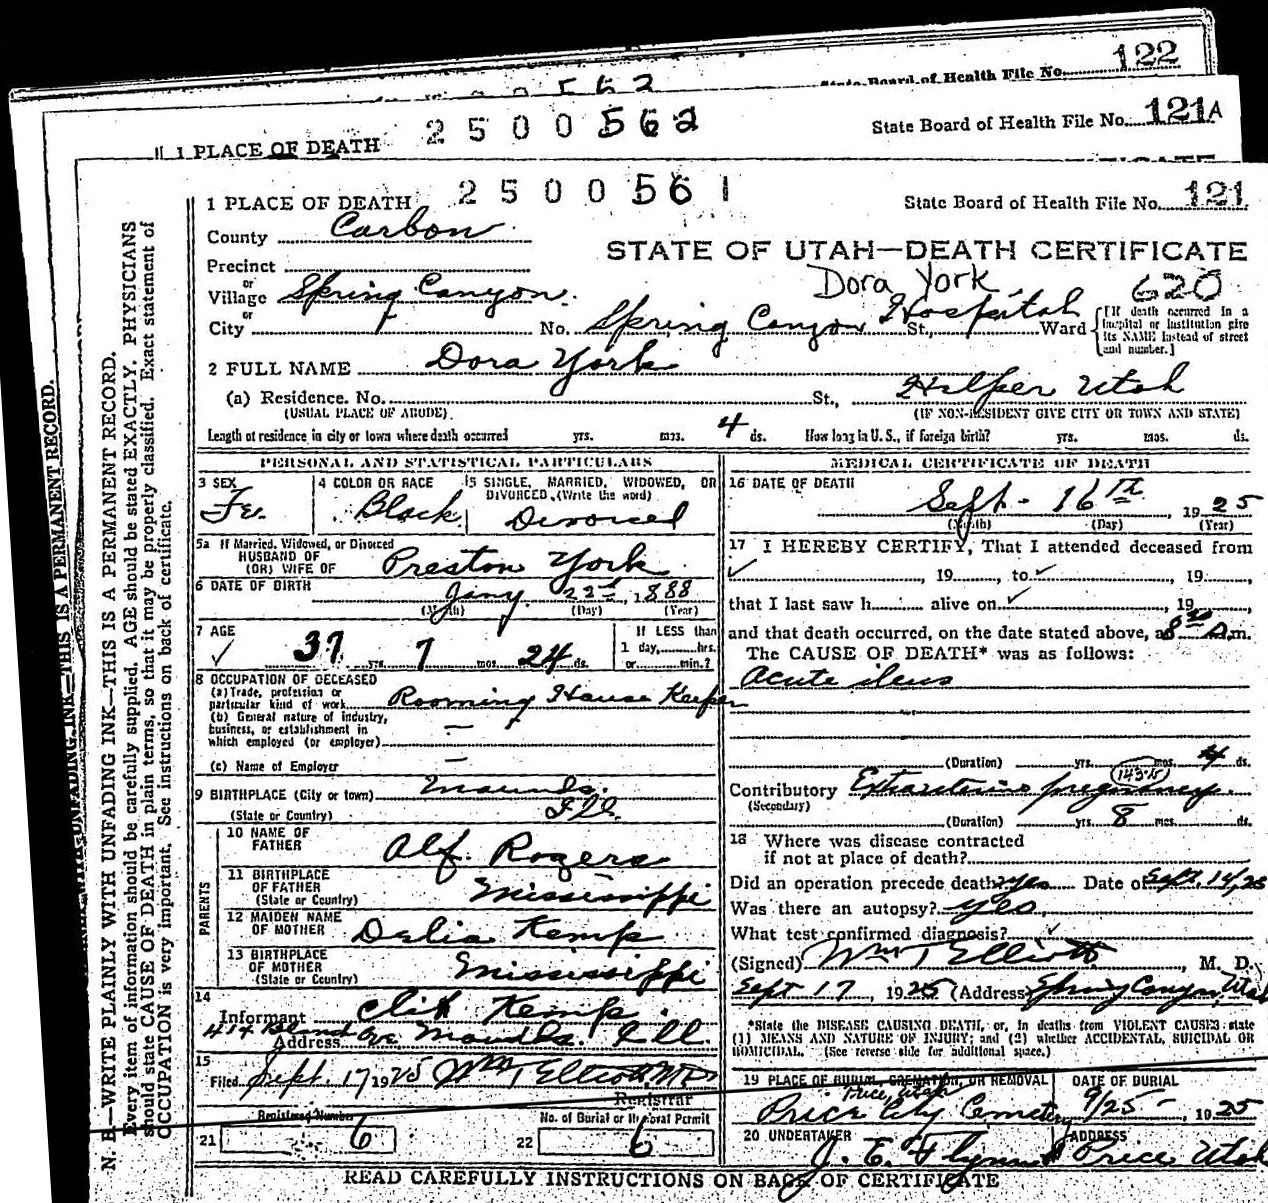 State Board of Health File No. 122
562
1 PLACE OF DEATH 2500562 State Board of Health File No. 121A
1 PLACE OF DEATH 2500561 State Board of Health File No. 121
County Carbon
STATE OF UTAH—DEATH CERTIFICATE
Precinct
or
Dora York 620
Village Spring Canyon
or
City No. Spring Canyon Hospital St., Ward
[If death occurred in a hospital or institution give its NAME instead of street and number.]
2 FULL NAME Dora York
(a) Residence. No. St., Helper Utah
(USUAL PLACE OF ABODE) (IF NON-RESIDENT GIVE CITY OR TOWN AND STATE)
Length of residence in city or town where death occurred yrs. mos. 4 ds. How long in U. S., if foreign birth? yrs. mos. ds.
PERSONAL AND STATISTICAL PARTICULARS
3 SEX 4 COLOR OR RACE 5 SINGLE, MARRIED, WIDOWED, OR
DIVORCED, (Write the word)
Fe. Black Divorced
5a If Married, Widowed, or Divorced
HUSBAND OF
(OR) WIFE OF Preston York
6 DATE OF BIRTH Jany. 22nd, 1888
(Month) (Day) (Year)
7 AGE If LESS than
37 yrs. 7 mos. 24 ds. 1 day, hrs.
or min.?
8 OCCUPATION OF DECEASED
(a) Trade, profession or
particular kind of work Rooming House Keeper
(b) General nature of industry,
business, or establishment in
which employed (or employer) —
(c) Name of Employer —
9 BIRTHPLACE (City or town) Mounds.
(State or Country) Ill.
PARENTS
10 NAME OF
FATHER Alf. Rogers
11 BIRTHPLACE
OF FATHER
(State or Country) Mississippi
12 MAIDEN NAME
OF MOTHER Delia Kemp
13 BIRTHPLACE
OF MOTHER
(State or Country) Mississippi
14
Informant Kemp.
414 Ave Mounds. Ill.
Address
15
Filed Sept. 17 1925 Wm T Elliott MD
Registrar
Registered Number No. of Burial or Removal Permit
21 6 22 6
MEDICAL CERTIFICATE OF DEATH
16 DATE OF DEATH
Sept. 16th, 1925
(Month) (Day) (Year)
17 I HEREBY CERTIFY, That I attended deceased from
, 19, to , 19,
that I last saw h alive on , 19
and that death occurred, on the date stated above, at 8 m.
The CAUSE OF DEATH* was as follows:
Acute ileus
(Duration) yrs. mos. 4 ds.
Contributory Extrauterine pregnancy.
(Secondary)
(Duration) yrs. 8 mos. ds.
18 Where was disease contracted
if not at place of death?
Did an operation precede death? yes Date of Sept. 14/25
Was there an autopsy? yes.
What test confirmed diagnosis?
(Signed) Wm T Elliott, M. D.
Sept 17, 1925 (Address) Spring Canyon, Utah
*State the DISEASE CAUSING DEATH, or, in deaths from VIOLENT CAUSES state
(1) MEANS AND NATURE OF INJURY; and (2) whether ACCIDENTAL, SUICIDAL OR
HOMICIDAL. (See reverse side for additional space.)
19 PLACE OF BURIAL, CREMATION, OR REMOVAL DATE OF BURIAL
Price, Utah
Price City Cemetery 9/25 — , 1925
20 UNDERTAKER ADDRESS
J. E. Flynn Price Utah
READ CAREFULLY INSTRUCTIONS ON BACK OF CERTIFICATE
N. B.—WRITE PLAINLY WITH UNFADING INK—THIS IS A PERMANENT RECORD.
Every item of information should be carefully supplied. AGE should be stated EXACTLY. PHYSICIANS
should state CAUSE OF DEATH in plain terms, so that it may be properly classified. Exact statement of
OCCUPATION is very important. See instructions on back of certificate.
UNFADING INK—THIS IS A PERMANENT RECORD.